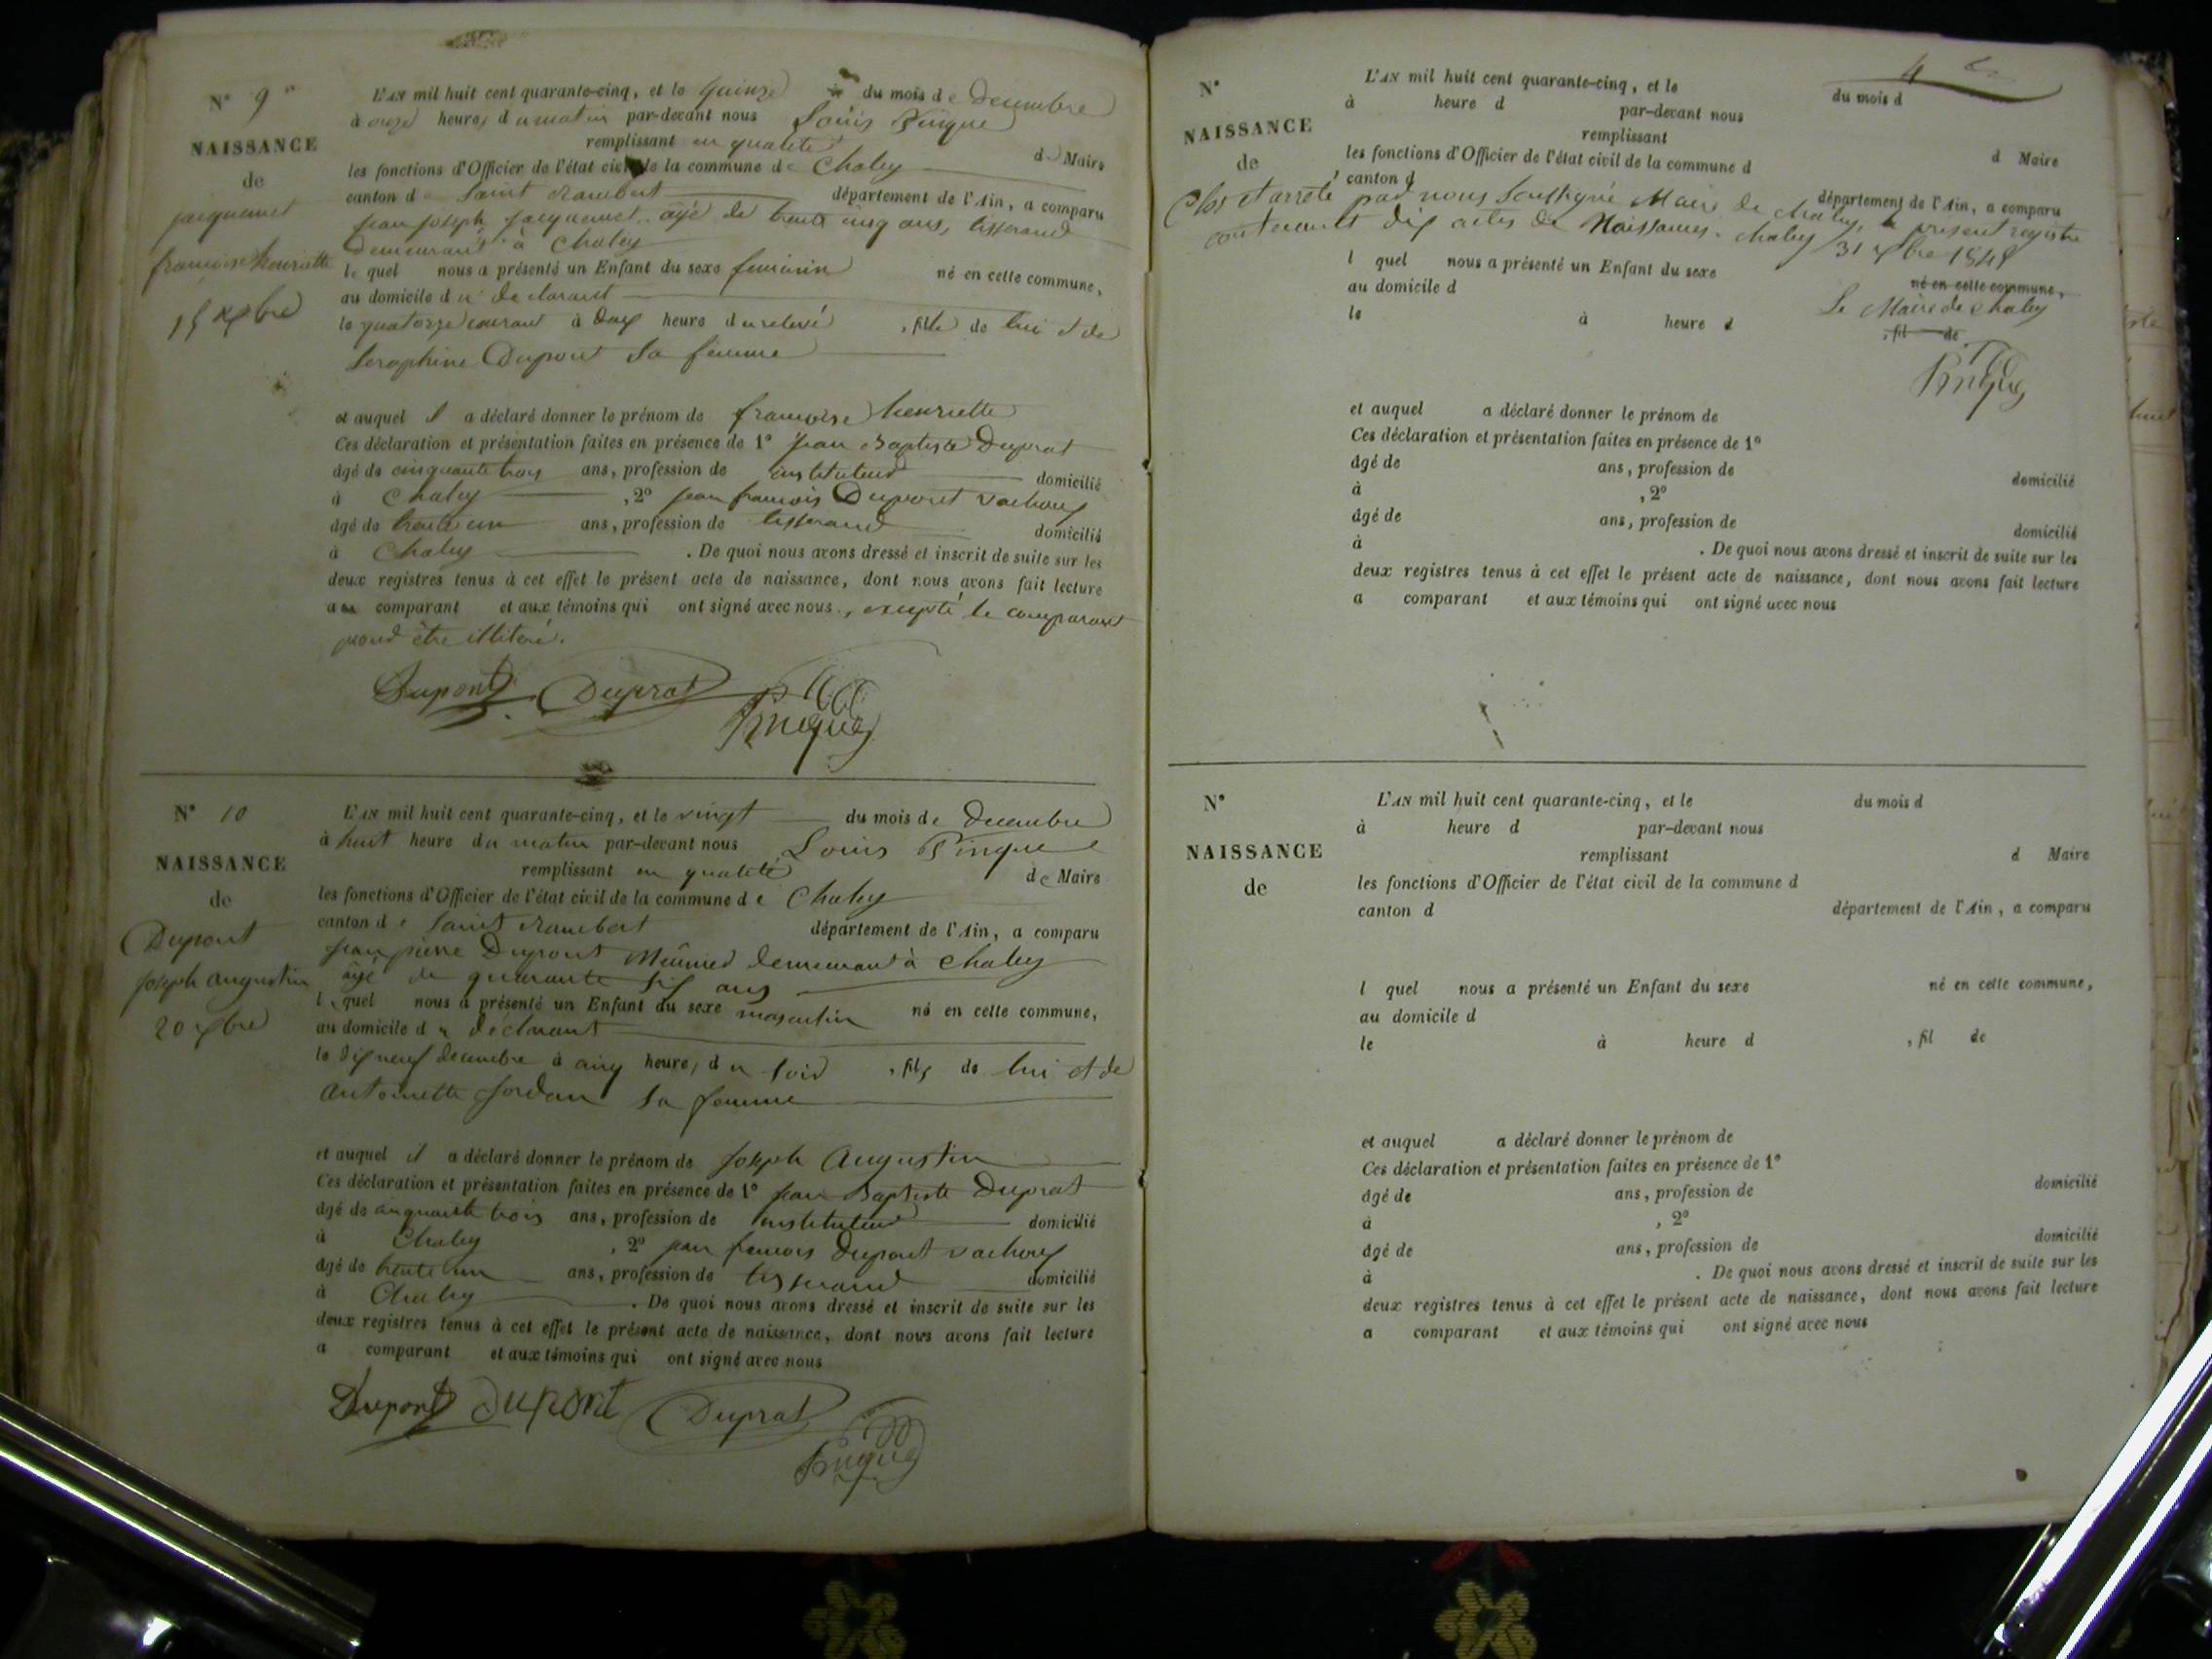 N° 9
NAISSANCE
de
jacquemet
francoise henriette
15 xbre
L'AN mil huit cent quarante-cinq, et le quinze du mois de decembre
à onze heures du matin par-devant nous Louis Pingue
remplissant en qualité de Maire
les fonctions d'Officier de l'état civil de la commune de Chaley
canton de Saint Rambert département de l'Ain, a comparu
jean joseph jacquemet, âgé de trente cinq ans, tisserand
demeurant à Chaley
le quel nous a présenté un Enfant du sexe feminin né en cette commune,
au domicile du declarant
le quatorze courant à deux heure du relevé, fille de lui et de
Seraphine Dupont sa femme
et auquel il a déclaré donner le prénom de francoise henriette
Ces déclaration et présentation faites en présence de 1° jean Baptiste Duprat
âgé de cinquante trois ans, profession de instituteur domicilié
à Chaley, 2° jean francois Dupont vachoux
âgé de trente un ans, profession de tisserand domicilié
à Chaley. De quoi nous avons dressé et inscrit de suite sur les
deux registres tenus à cet effet le présent acte de naissance, dont nous avons fait lecture
au comparant et aux témoins qui ont signé avec nous, excepté le comparant
pour être illitéré.
Dupont Duprat Pingue
N° 10
NAISSANCE
de
Dupont
joseph augustin
20 xbre
L'AN mil huit cent quarante-cinq, et le vingt du mois de decembre
à huit heure du matin par-devant nous Louis Pingue
remplissant en qualité de Maire
les fonctions d'Officier de l'état civil de la commune de Chaley
canton de Saint Rambert département de l'Ain, a comparu
jean pierre Dupont Meûnier demeurant à chaley
âgé de quarante six ans
le quel nous a présenté un Enfant du sexe masculin né en cette commune,
au domicile du declarant
le dix neuf decembre à cinq heures du soir, fils de lui et de
antoinette jordan sa femme
et auquel il a déclaré donner le prénom de joseph Augustin
Ces déclaration et présentation faites en présence de 1° jean Baptiste Duprat
âgé de cinquante trois ans, profession de instituteur domicilié
à Chaley, 2° jean francois Dupont vachoux
âgé de trente un ans, profession de tisserand domicilié
à Chaley. De quoi nous avons dressé et inscrit de suite sur les
deux registres tenus à cet effet le présent acte de naissance, dont nous avons fait lecture
a comparant et aux témoins qui ont signé avec nous
Dupont DUPONT Duprat Pingue
4
N°
NAISSANCE
de
L'AN mil huit cent quarante-cinq, et le du mois d
à heure d par-devant nous
remplissant d Maire
les fonctions d'Officier de l'état civil de la commune d
canton d département de l'Ain, a comparu
Clos et arrêté par nous soussigné Maire de chaley, le present registre
contenant dix actes de Naissances. chaley 31 xbre 1845
l quel nous a présenté un Enfant du sexe né en cette commune,
au domicile d
Le Maire de chaley
le à heure d , fil de
Pingue
et auquel a déclaré donner le prénom de
Ces déclaration et présentation faites en présence de 1°
âgé de ans, profession de domicilié
à , 2°
âgé de ans, profession de domicilié
à . De quoi nous avons dressé et inscrit de suite sur les
deux registres tenus à cet effet le présent acte de naissance, dont nous avons fait lecture
a comparant et aux témoins qui ont signé avec nous
N°
NAISSANCE
de
L'AN mil huit cent quarante-cinq, et le du mois d
à heure d par-devant nous
remplissant d Maire
les fonctions d'Officier de l'état civil de la commune d
canton d département de l'Ain, a comparu
l quel nous a présenté un Enfant du sexe né en cette commune,
au domicile d
le à heure d , fil de
et auquel a déclaré donner le prénom de
Ces déclaration et présentation faites en présence de 1°
âgé de ans, profession de domicilié
à , 2°
âgé de ans, profession de domicilié
à . De quoi nous avons dressé et inscrit de suite sur les
deux registres tenus à cet effet le présent acte de naissance, dont nous avons fait lecture
a comparant et aux témoins qui ont signé avec nous